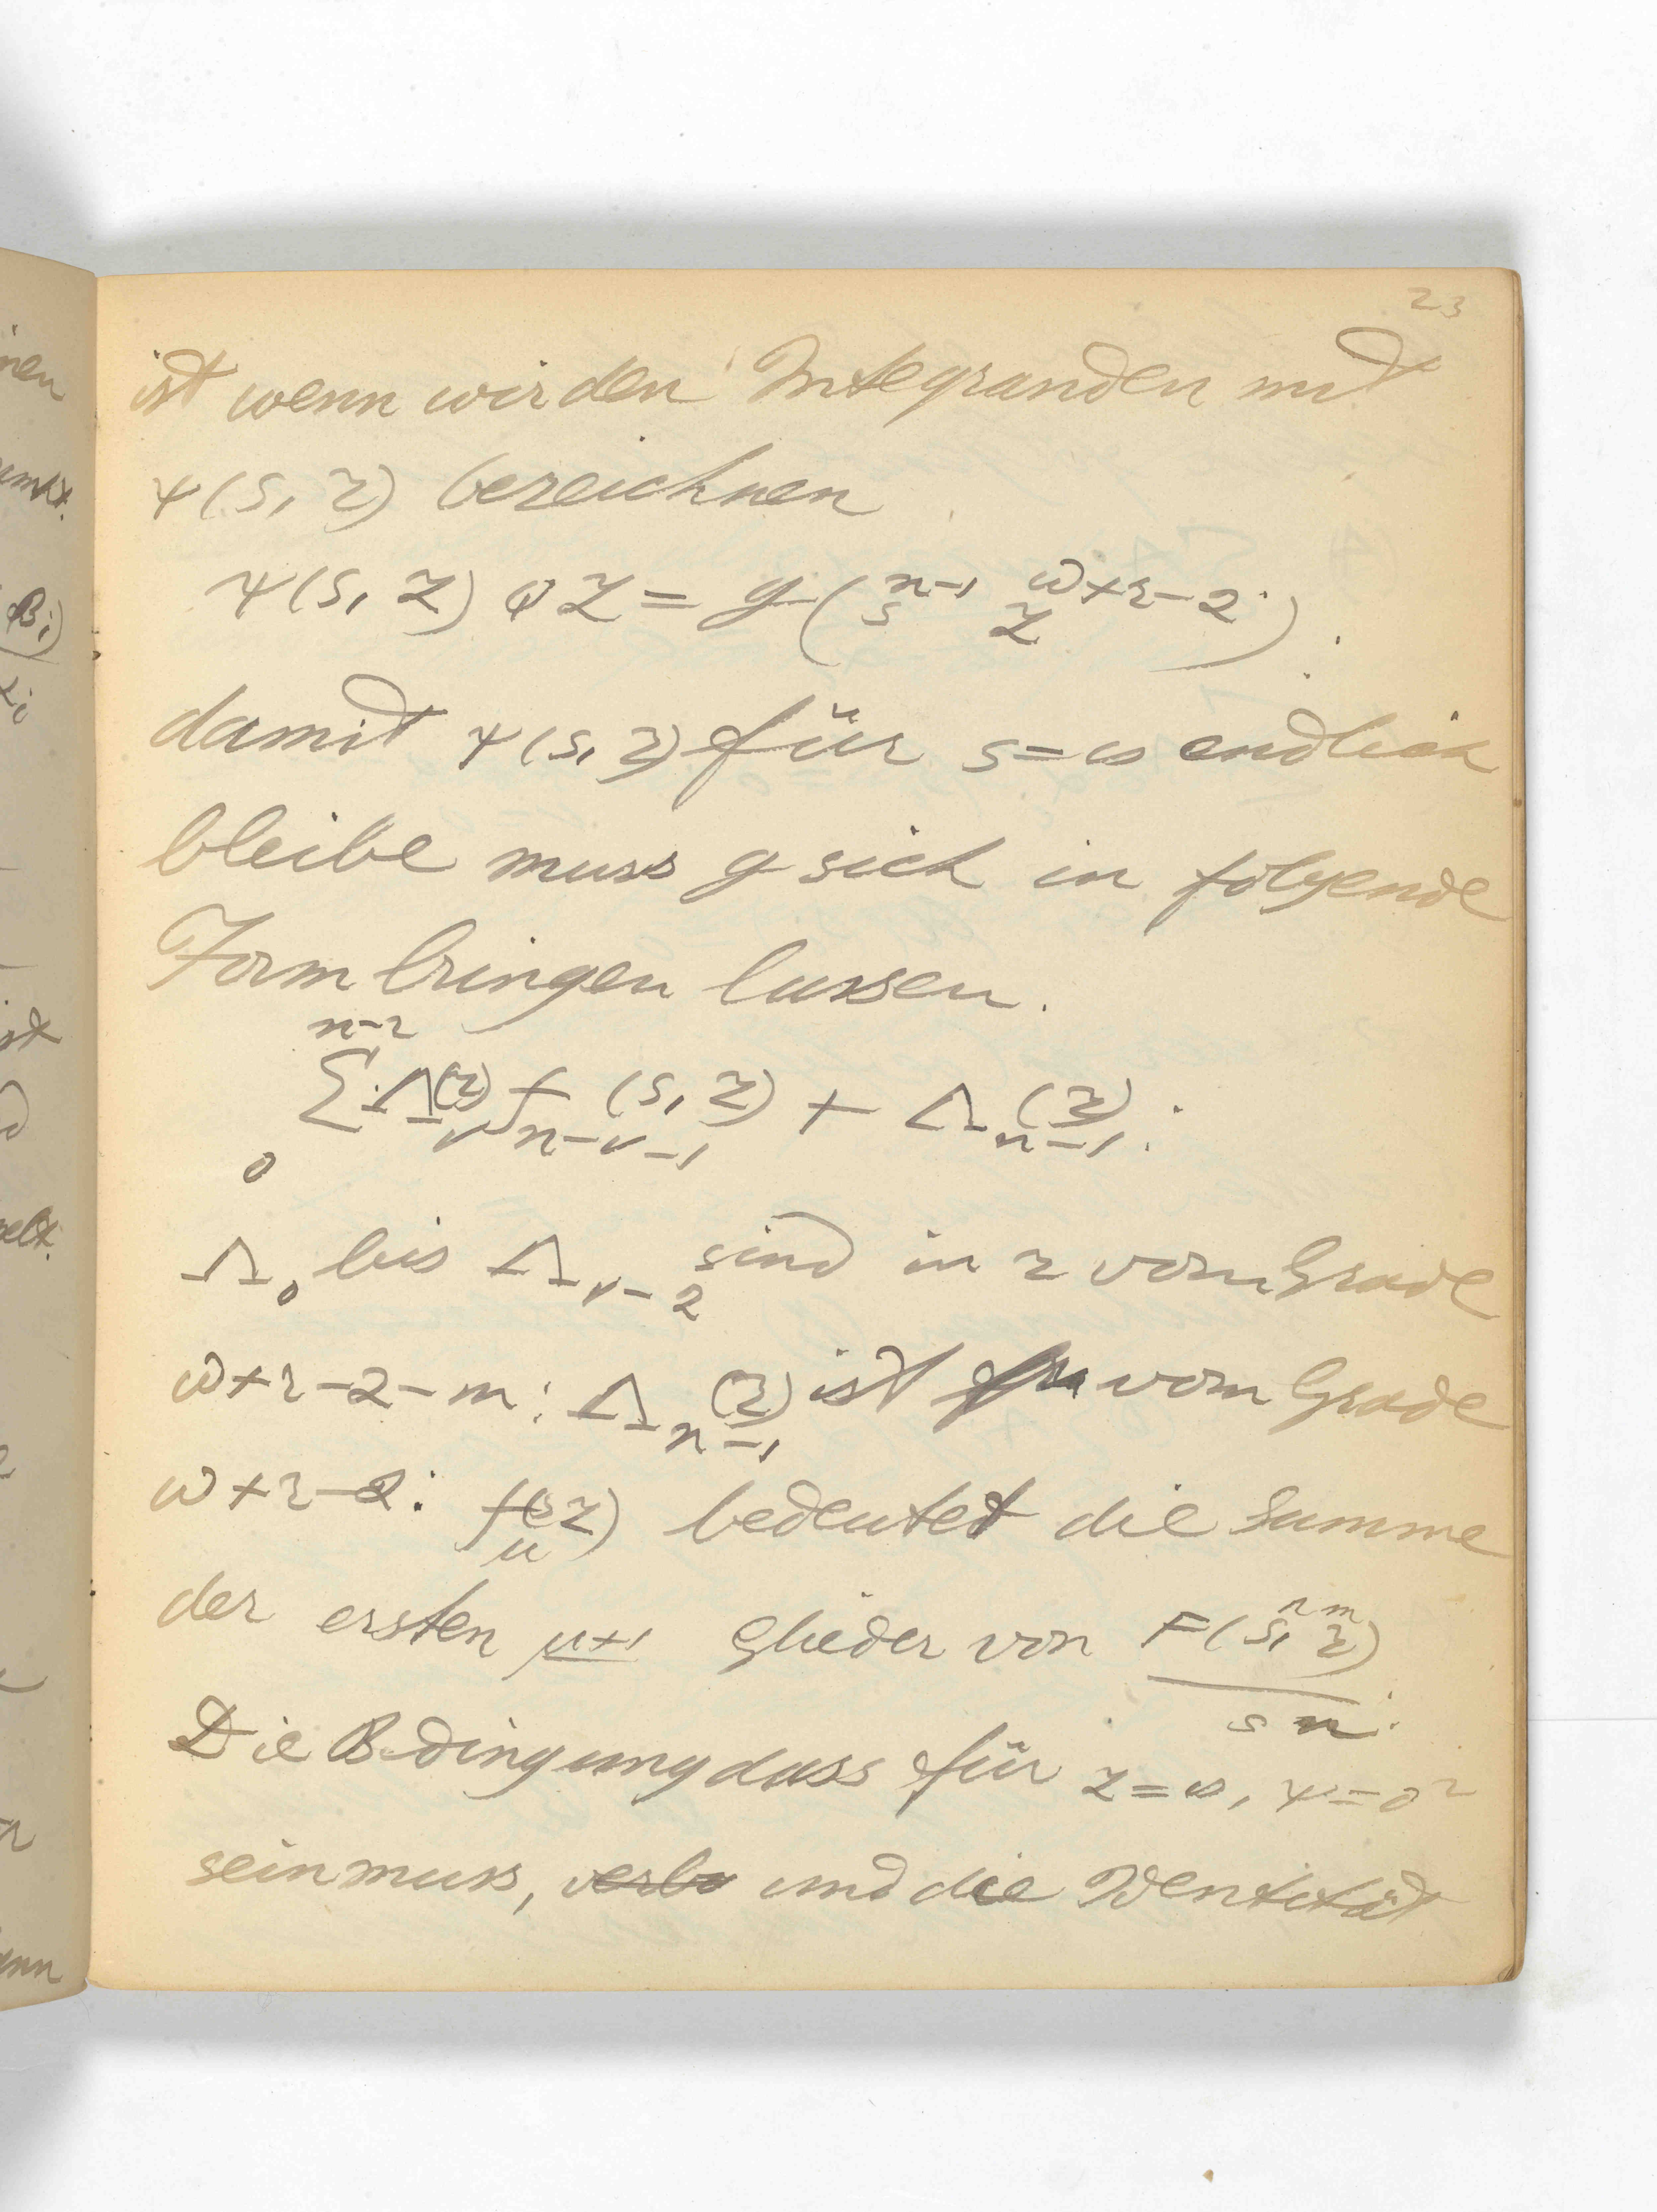 23
ist wenn wir den Integranden mit
ψ(s, z) bezeichnen
ψ(s, z) φz = g(s^{n-1} z^{w+r-2}).
damit ψ(s, z) für s=∞ endlich
bleibe muss g sich in folgende
Form bringen lassen.
n-2
Σ Λ_ν(z) f_{n-ν-1}(s, z) + Λ_{n-1}(z).
0
Λ_0 bis Λ_{ν-2} sind in z vom Grade
w+r-2-m: Λ_{n-1}(z) ist vom Grade
w+r-2: f_μ(s z) bedeutet die Summe
der ersten μ+1 Glieder von F(s^n, z^m)
s^n.
Die Bedingung dass für z=∞, ψ=0^2
sein muss, verb und die Identität
nen
B_i)
ist